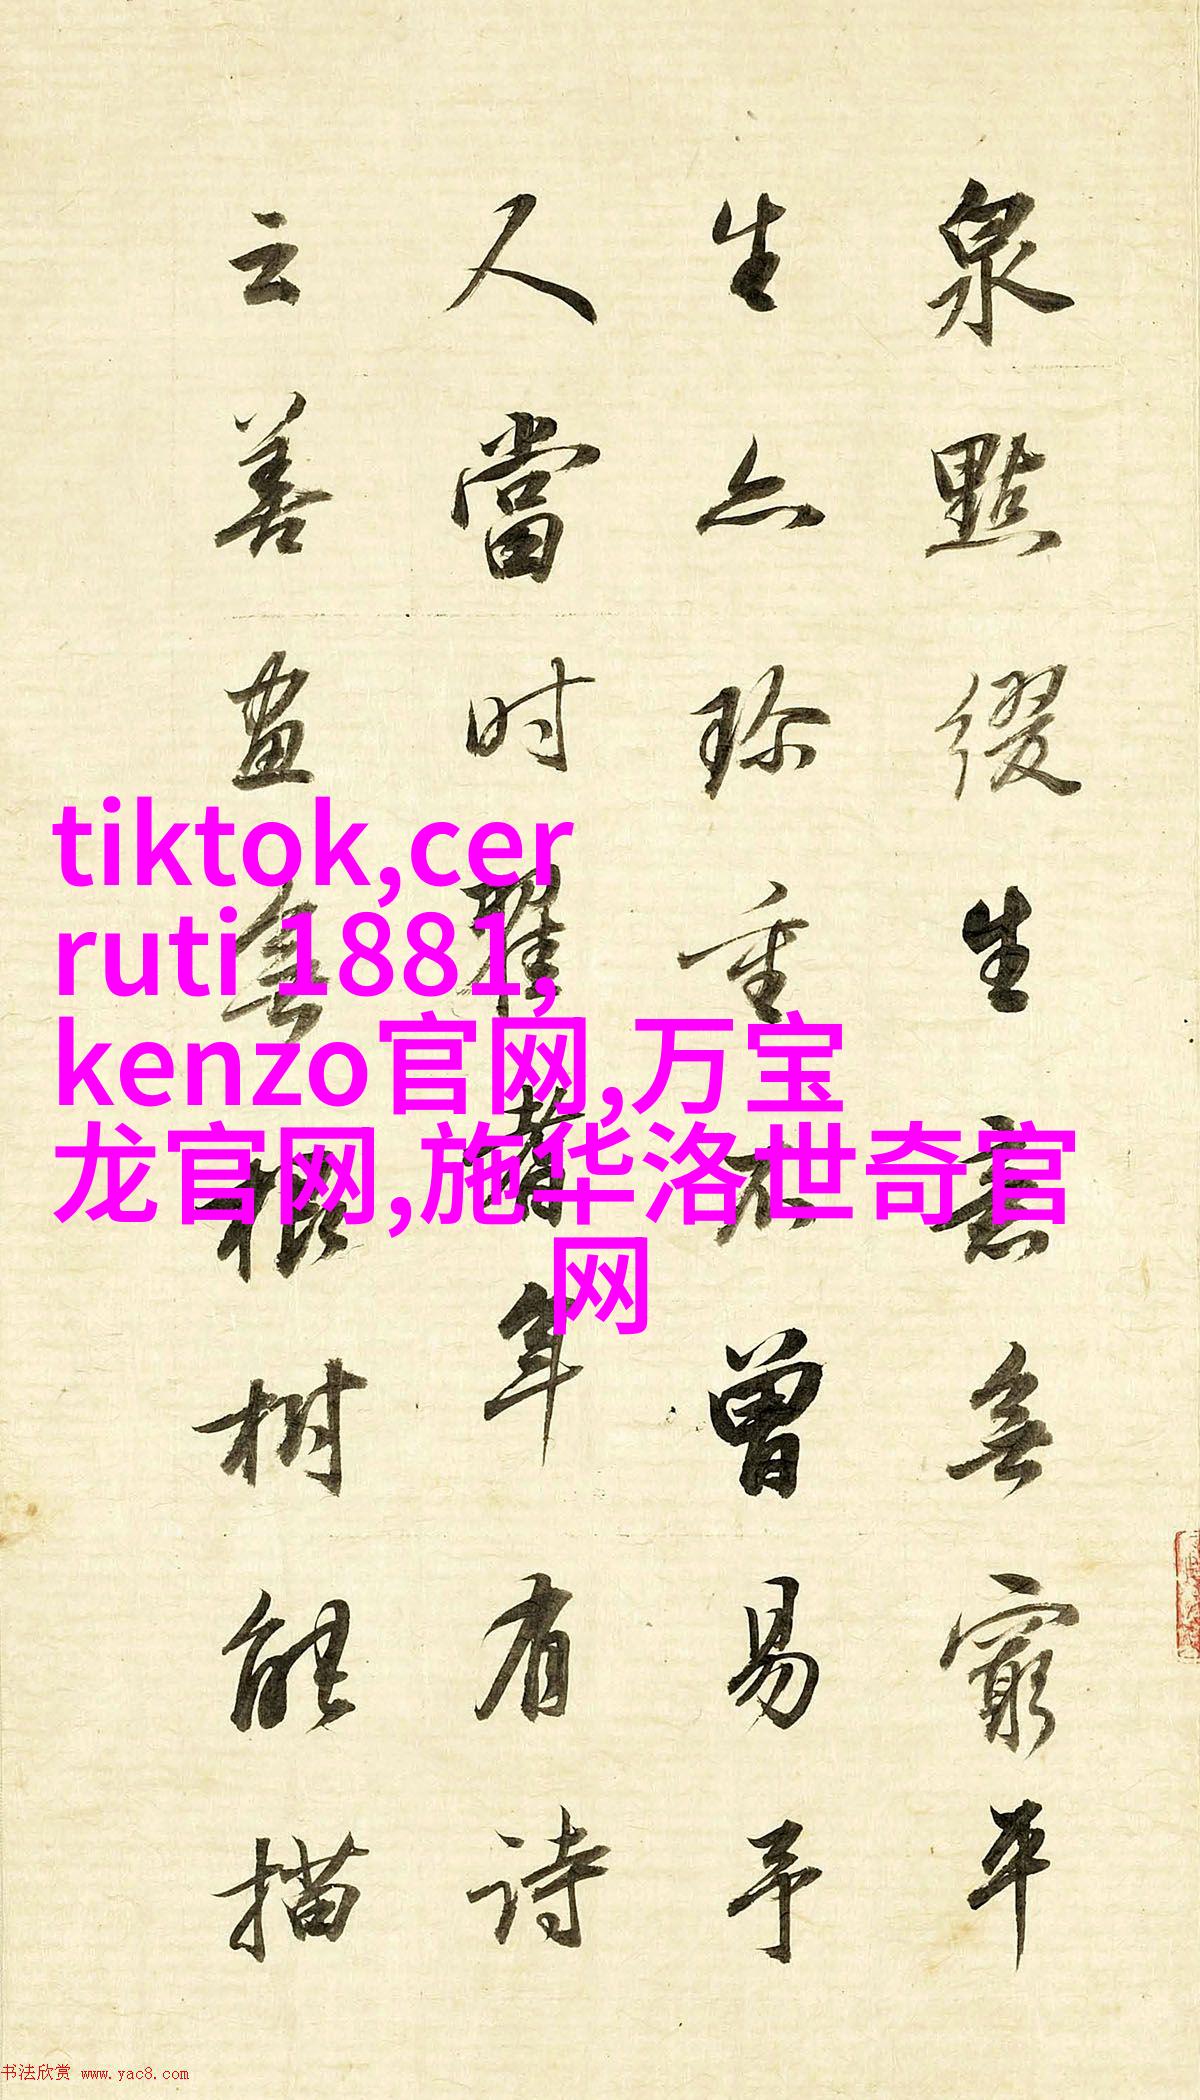 泉點缀生意無窮平
生亦珍重不曾易予
人當时翟耆年有诗
云善画無根树能描
tiktok,cer
ruti 1881,
kenzo官网,万宝
龙官网,施华洛世奇官
网
书法欣赏 www.yac8.com